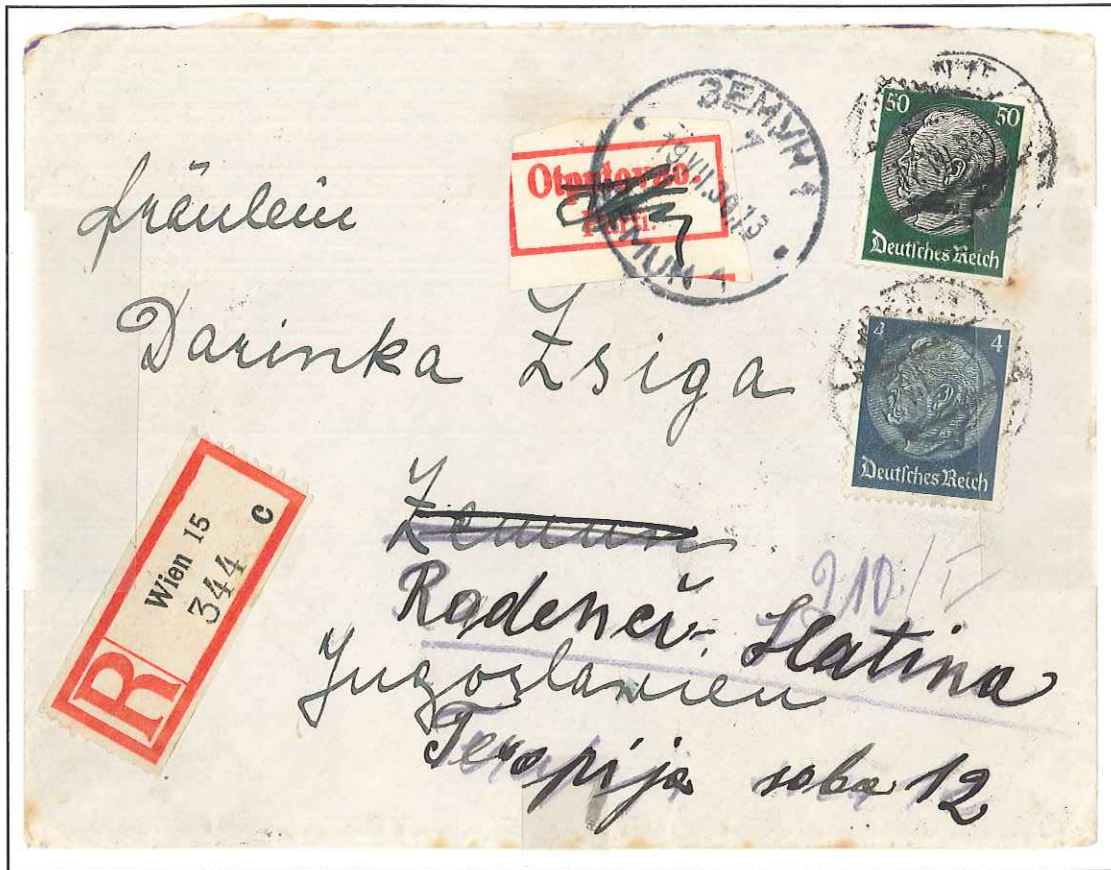 ЗЕМУН 1
ZEMUN 1
Otputovao.
Parti.
50 50
Deutsches Reich
4 4
Deutsches Reich
Fräulein
Darinka Zsiga
Zemun
210/I
Radenci-Slatina
Jugoslawien
Terapija soba 12
R
Wien 15
c
344